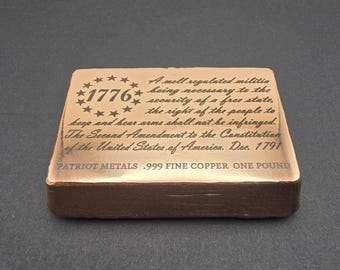 1776
A well regulated militia
being necessary to the
security of a free state,
the right of the people to
keep and bear arms shall not be infringed.
The Second Amendment to the Constitution
of the United States of America. Dec. 1791
PATRIOT METALS .999 FINE COPPER ONE POUND